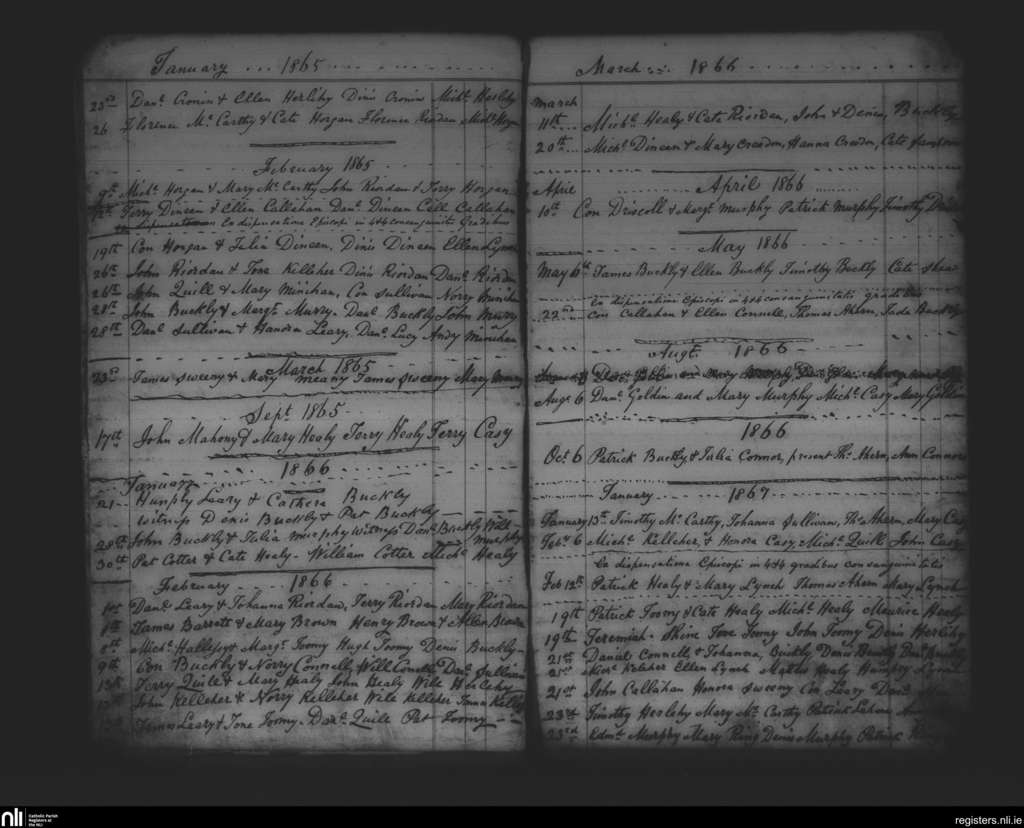 January 1865
23rd Danl Cronin & Ellen Herlihy Dinis Cronin Michl Herlihy
26 Florence Mc Carthy & Cate Horgan Florence Riordan Michl Horgan
February 1865
9th Michl Horgan & Mary Mc Carthy John Riordan & Jerry Horgan
Jerry Dineen & Ellen Callahan Danl Dineen Callahan
Ex dispensatione Episcopi in 4 & 4 consanguinitis Gradibus
19th Con Horgan & Julia Dineen, Dinis Dineen Ellen Lynch
26th John Riordan & Jone Kelleher Dinis Riordan Danl Riordan
26th John Quill & Mary Minihan, Con Sullivan Norry Minihan
28th John Buckly & Margt Murry. Danl Buckly John Murry
28th Danl Sullivan & Hanora Leary, Danl Lucy Andy Minihan
March 1865
23rd James Sweeny & Mary Meany James Sweeny Mary
Sept 1865
17th John Mahony & Mary Healy Jerry Healy Jerry Casy
1866
January
21 Humphy Leary & Buckly
witness Denis Buckly & Pat Buckly
28th John Buckly & Julia Murphy witness Danl Buckly Will Murphy
30th Pat Cotter & Cate Healy - William Cotter Michl Healy
February 1866
Danl Leary & Johanna Riordan, Jerry Riordan Mary Riordan
James Barrett & Mary Brown Henry Brown & Brown
8th Michl & Margt Toomy Hugh Toomy Denis Buckly
9th Con Buckly & Norry Connell, Will Connell Danl Sullivan
13th Jerry Quile & Mary Healy John Healy Wile Herlehy
John Kelleher & Norry Kelleher Wile Kelleher
James Leary & Jone Toomy. Danl Quile Pat Toomy
March 1866
March
11th Michl Healy & Cate Riordan, John & Denis, Buckly
20th Michl Dineen & Mary Creedon, Hanna Creedon, Cate
April 1866
April
10th Con Driscoll & Margt Murphy Patrick Murphy Timothy
May 1866
May 6th James Buckly & Ellen Buckly Timothy Buckly Cate Shea
Ex dispensatione Episcopi in 4 & 4 consanguinitis gradibus
22nd Con Callahan & Ellen Connell, Thomas Ahern, Jude Buckly
Augt 1866
Augt 6 Danl Goldin and Mary Murphy Michl Casy Mary Goldin
1866
Oct 6 Patrick Buckly & Julia Connor, present Ths Ahern, Ann Connor
January 1867
January 13th Timothy Mc Carthy, Johanna Sullivan, Ths Ahern, Mary Casy
Feby 6 Michl Kelleher, & Honora Casy, Michl Quill John Casy
Ex dispensatione Episcopi in 4 & 4 gradibus consanguinitatis
Feb 12th Patrick Healy & Mary Lynch Thomas Ahern Mary Lynch
19th Patrick Toomy & Cate Healy Michl Healy Maurice Healy
19th Jeremiah Shine Jone Toomy John Toomy Denis Herlihy
21st Daniel Connell & Johanna, Buckly Denis Buckly
21st Kelcher Ellen Lynch Healy Humphry
21st John Callahan Honora Sweeny Con Leary Danl
23rd Timothy Herlehy Mary Mc Carthy Patrick
23rd Edmt Murphy Mary Ring Denis Murphy Patrick
nli Catholic Parish Registers at the NLI
registers.nli.ie